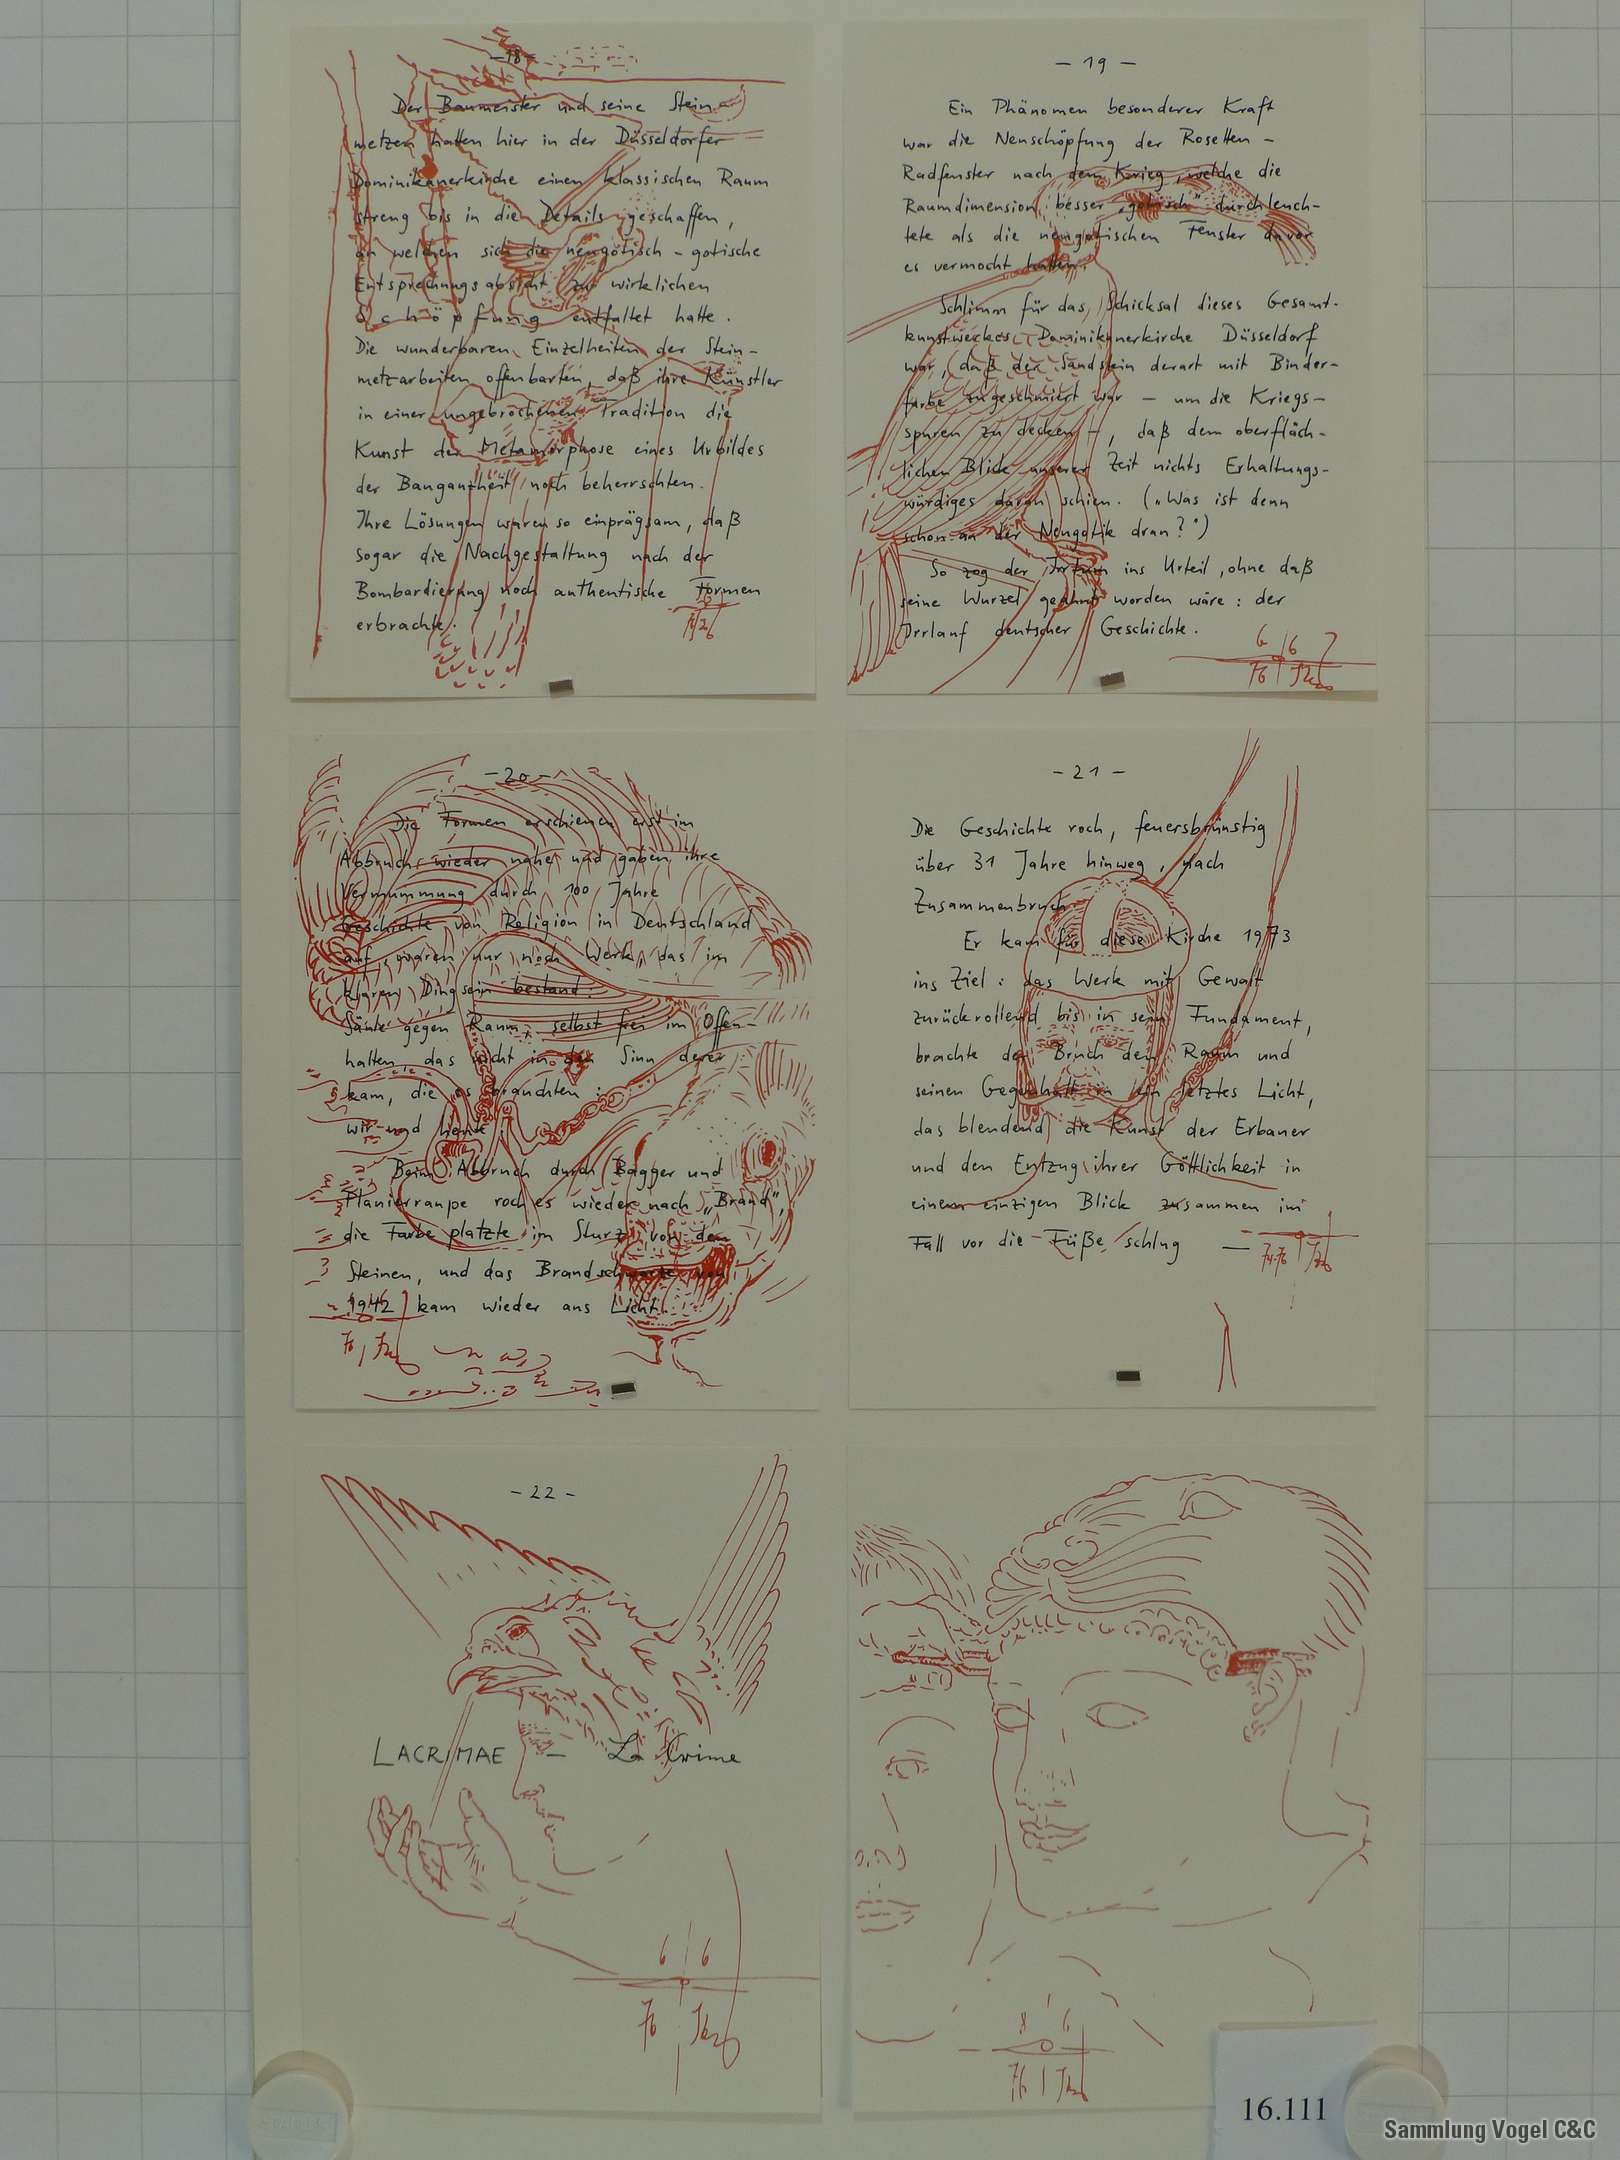 -18-
Der Baumeister und seine Stein-
metzen hatten hier in der Düsseldorfer
Dominikanerkirche einen klassischen Raum
streng bis in die Details geschaffen,
an welchen sich die neugotisch-gotische
Entsprechungsabsicht zur wirklichen
Schöpfung entfaltet hatte.
Die wunderbaren Einzelheiten der Stein-
metzarbeiten offenbarten, daß ihre Künstler
in einer ungebrochenen Tradition die
Kunst der Metamorphose eines Urbildes
der Bauganzheit noch beherrschten.
Ihre Lösungen waren so einprägsam, daß
sogar die Nachgestaltung nach der
Bombardierung noch authentische Formen
erbrachte.
- 19 -
Ein Phänomen besonderer Kraft
war die Neuschöpfung der Rosetten-
Radfenster nach dem Krieg, welche die
Raumdimension besser „gotisch" durchleuch-
tete als die neugotischen Fenster davor
es vermocht hatten.
Schlimm für das Schicksal dieses Gesamt-
kunstwerkes Dominikanerkirche Düsseldorf
war, daß der Sandstein derart mit Binder-
farbe zugeschmiert war - um die Kriegs-
spuren zu decken -, daß dem oberfläch-
lichen Blick unserer Zeit nichts Erhaltungs-
würdiges daran schien. („Was ist denn
schon an der Neugotik dran?")
So zog der Irrtum ins Urteil, ohne daß
seine Wurzel geahnt worden wäre: der
Irrlauf deutscher Geschichte.
6 6
76
-20-
Die Formen erschienen erst im
Abbruch wieder nahe und gaben ihre
Vermummung durch 100 Jahre
Geschichte von Religion in Deutschland
auf, waren nur noch Werk, das im
klaren Dingsein bestand:
Säule gegen Raum, selbst frei im Offen-
halten, das nicht in den Sinn derer
kam, die es brauchten:
wir und heute
Beim Abbruch durch Bagger und
Planierraupe roch es wieder nach „Brand",
die Farbe platzte im Sturz von den
Steinen, und das Brandschwarze von
1942 kam wieder ans Licht.
76
- 21 -
Die Geschichte roch, feuersbrünstig
über 31 Jahre hinweg, nach
Zusammenbruch.
Er kam für diese Kirche 1973
ins Ziel: das Werk mit Gewalt
zurückrollend bis in sein Fundament,
brachte der Bruch den Raum und
seinen Gegenhalt in ein letztes Licht,
das blendend die Kunst der Erbauer
und den Entzug ihrer Göttlichkeit in
einem einzigen Blick zusammen im
Fall vor die Füße schlug —
-22-
LACRIMAE — La Crime
6 6
76
8 6
76
16.111
Sammlung Vogel C&C